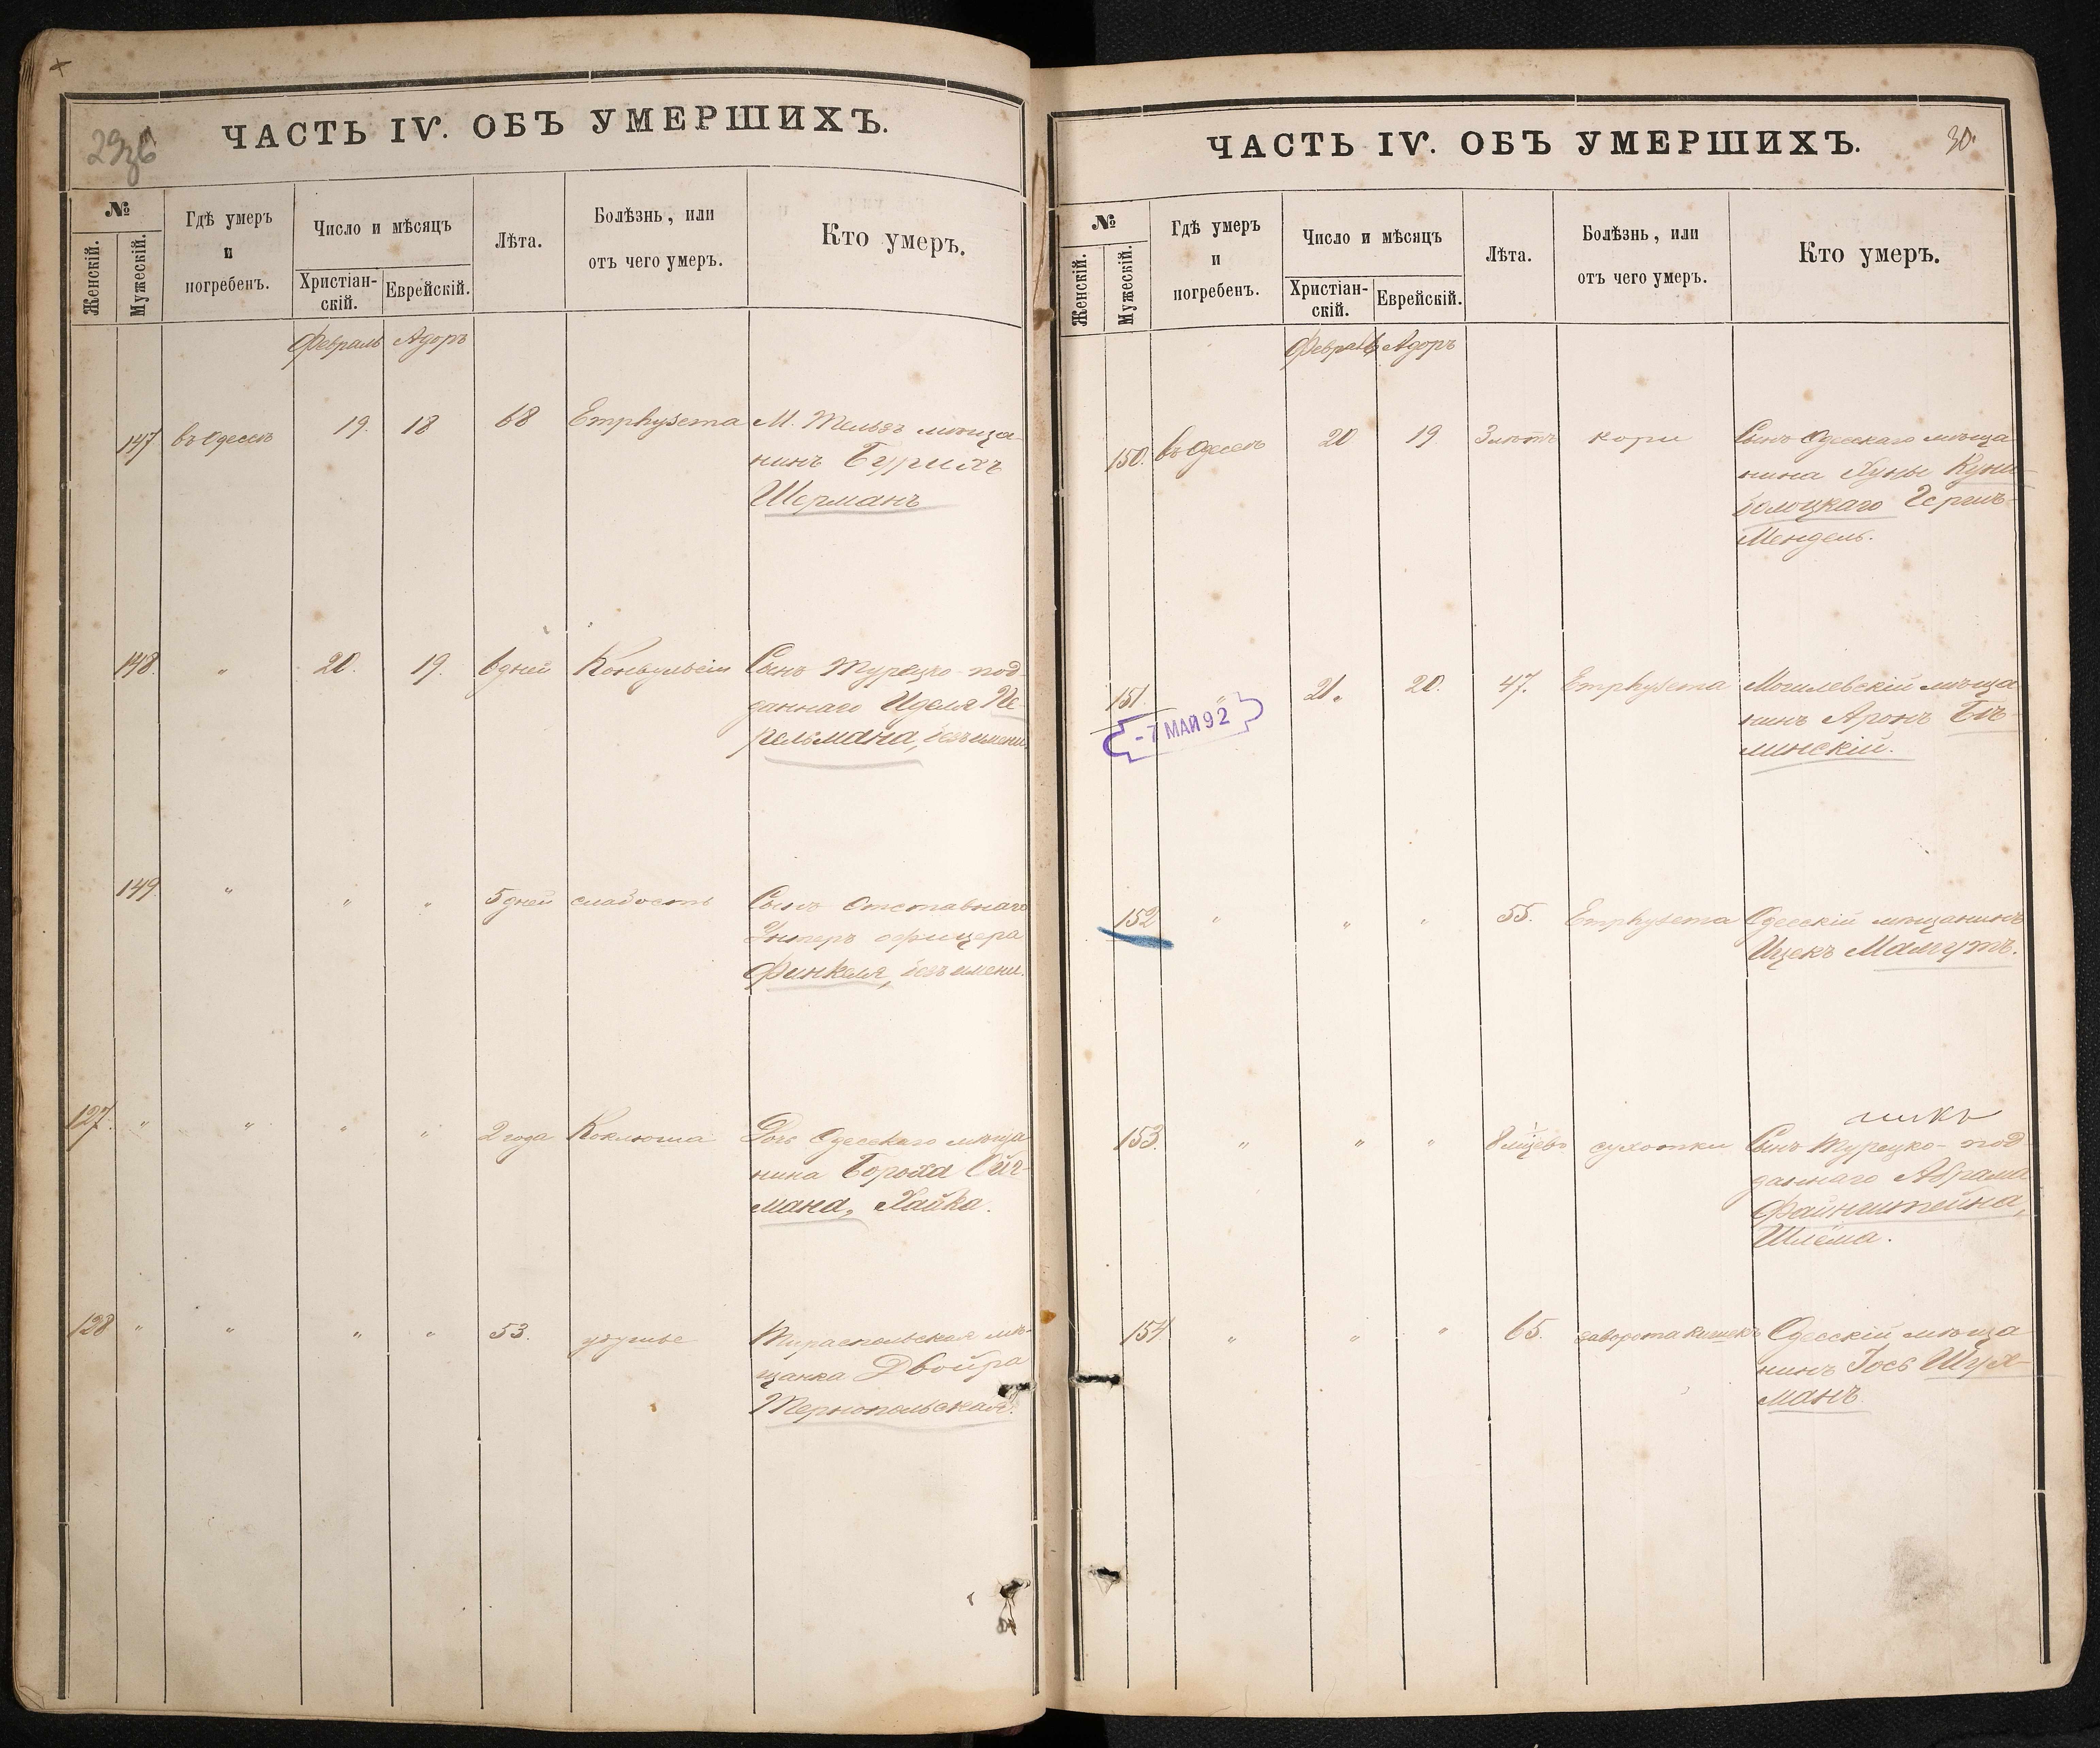 ЧАСТЬ IV. ОБЪ УМЕРШИХЪ.
№
Женскій.
Мужескій.
Гдѣ умеръ
и
погребенъ.
Число и мѣсяцъ
Христіан-
скій.
Еврейскій.
Лѣта.
Болѣзнь, или
отъ чего умеръ.
Кто умеръ.
Февраль Адоръ
147 въ Одессѣ 19. 18 68 Emphysema М. Тельзъ мѣща-
нинъ Бурихъ
Шерманъ
148. " 20. 19. 6 дней Конвульсіи Сынъ Турецко-под-
даннаго Иделя Пе-
рельмана, безъ имени.
149. " " " 5 дней слабость Сынъ Отставнаго
Унтеръ офицера
Финкеля, безъ имени.
127. " " " " 2 года Коклюша Дочь Одесскаго мѣща
нина Бороха
мана, Хайка.
128 " " " " 53. удушье Тираспольская мѣ-
щанка Двойра
Тернопольская.
ЧАСТЬ IV. ОБЪ УМЕРШИХЪ.
30.
№
Женскій.
Мужескій.
Гдѣ умеръ
и
погребенъ.
Число и мѣсяцъ
Христіан-
скій.
Еврейскій.
Лѣта.
Болѣзнь, или
отъ чего умеръ.
Кто умеръ.
Февраль Адоръ
150. въ Одессѣ 20 19 3 лѣтъ кори Сынъ Одесскаго мѣща
нина
Гершъ-
Мендель.
151. " 21. 20. 47. Emphysema Могилевскій мѣща
нинъ Аронъ Бѣ-
линскій.
-7 МАЙ 92
152 " " " 55. Emphysema Одесскій мѣщанинъ
Ицекъ Мамутъ.
153. " " " 8 мѣсцевъ сухотки Сынъ Турецко-под
даннаго Абрама
Файнштейна,
Шлёма.
154 " " " 65. заворота кишекъ Одесскій мѣща
нинъ Іось Шух-
манъ.